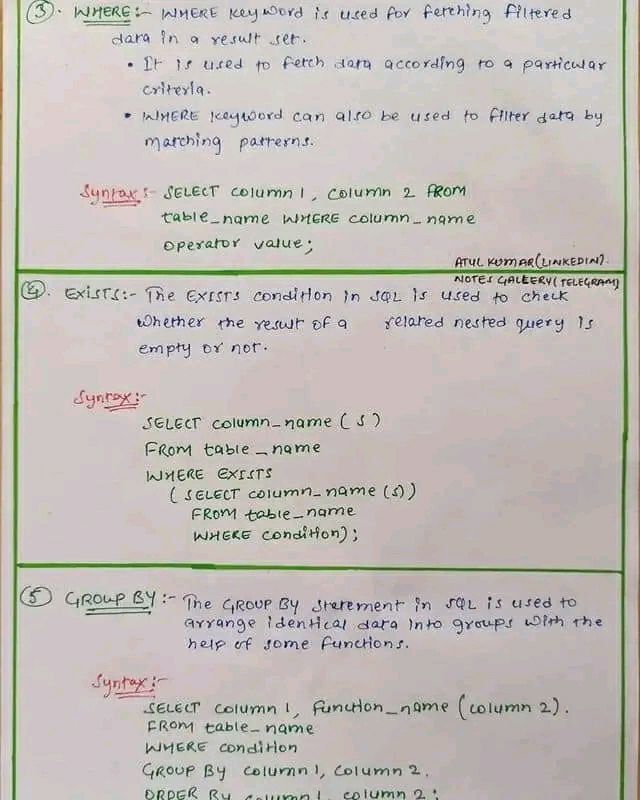 ③. WHERE:- WHERE keyword is used for fetching filtered
data in a result set.
• It is used to fetch data according to a particular
criteria.
• WHERE keyword can also be used to filter data by
matching patterns.
Syntax:- SELECT column 1, column 2 FROM
table_name WHERE column_name
operator value;
ATUL KUMAR(LINKEDIN).
NOTES GALLERY(TELEGRAM)
④. EXISTS:- The EXISTS condition in SQL is used to check
whether the result of a related nested query is
empty or not.
Syntax:-
SELECT column_name (s)
FROM table_name
WHERE EXISTS
(SELECT column_name (s))
FROM table_name
WHERE condition);
⑤ GROUP BY:- The GROUP BY statement in SQL is used to
arrange identical data into groups with the
help of some functions.
Syntax:-
SELECT column 1, function_name (column 2).
FROM table_name
WHERE condition
GROUP BY column 1, column 2.
ORDER BY column 1, column 2;